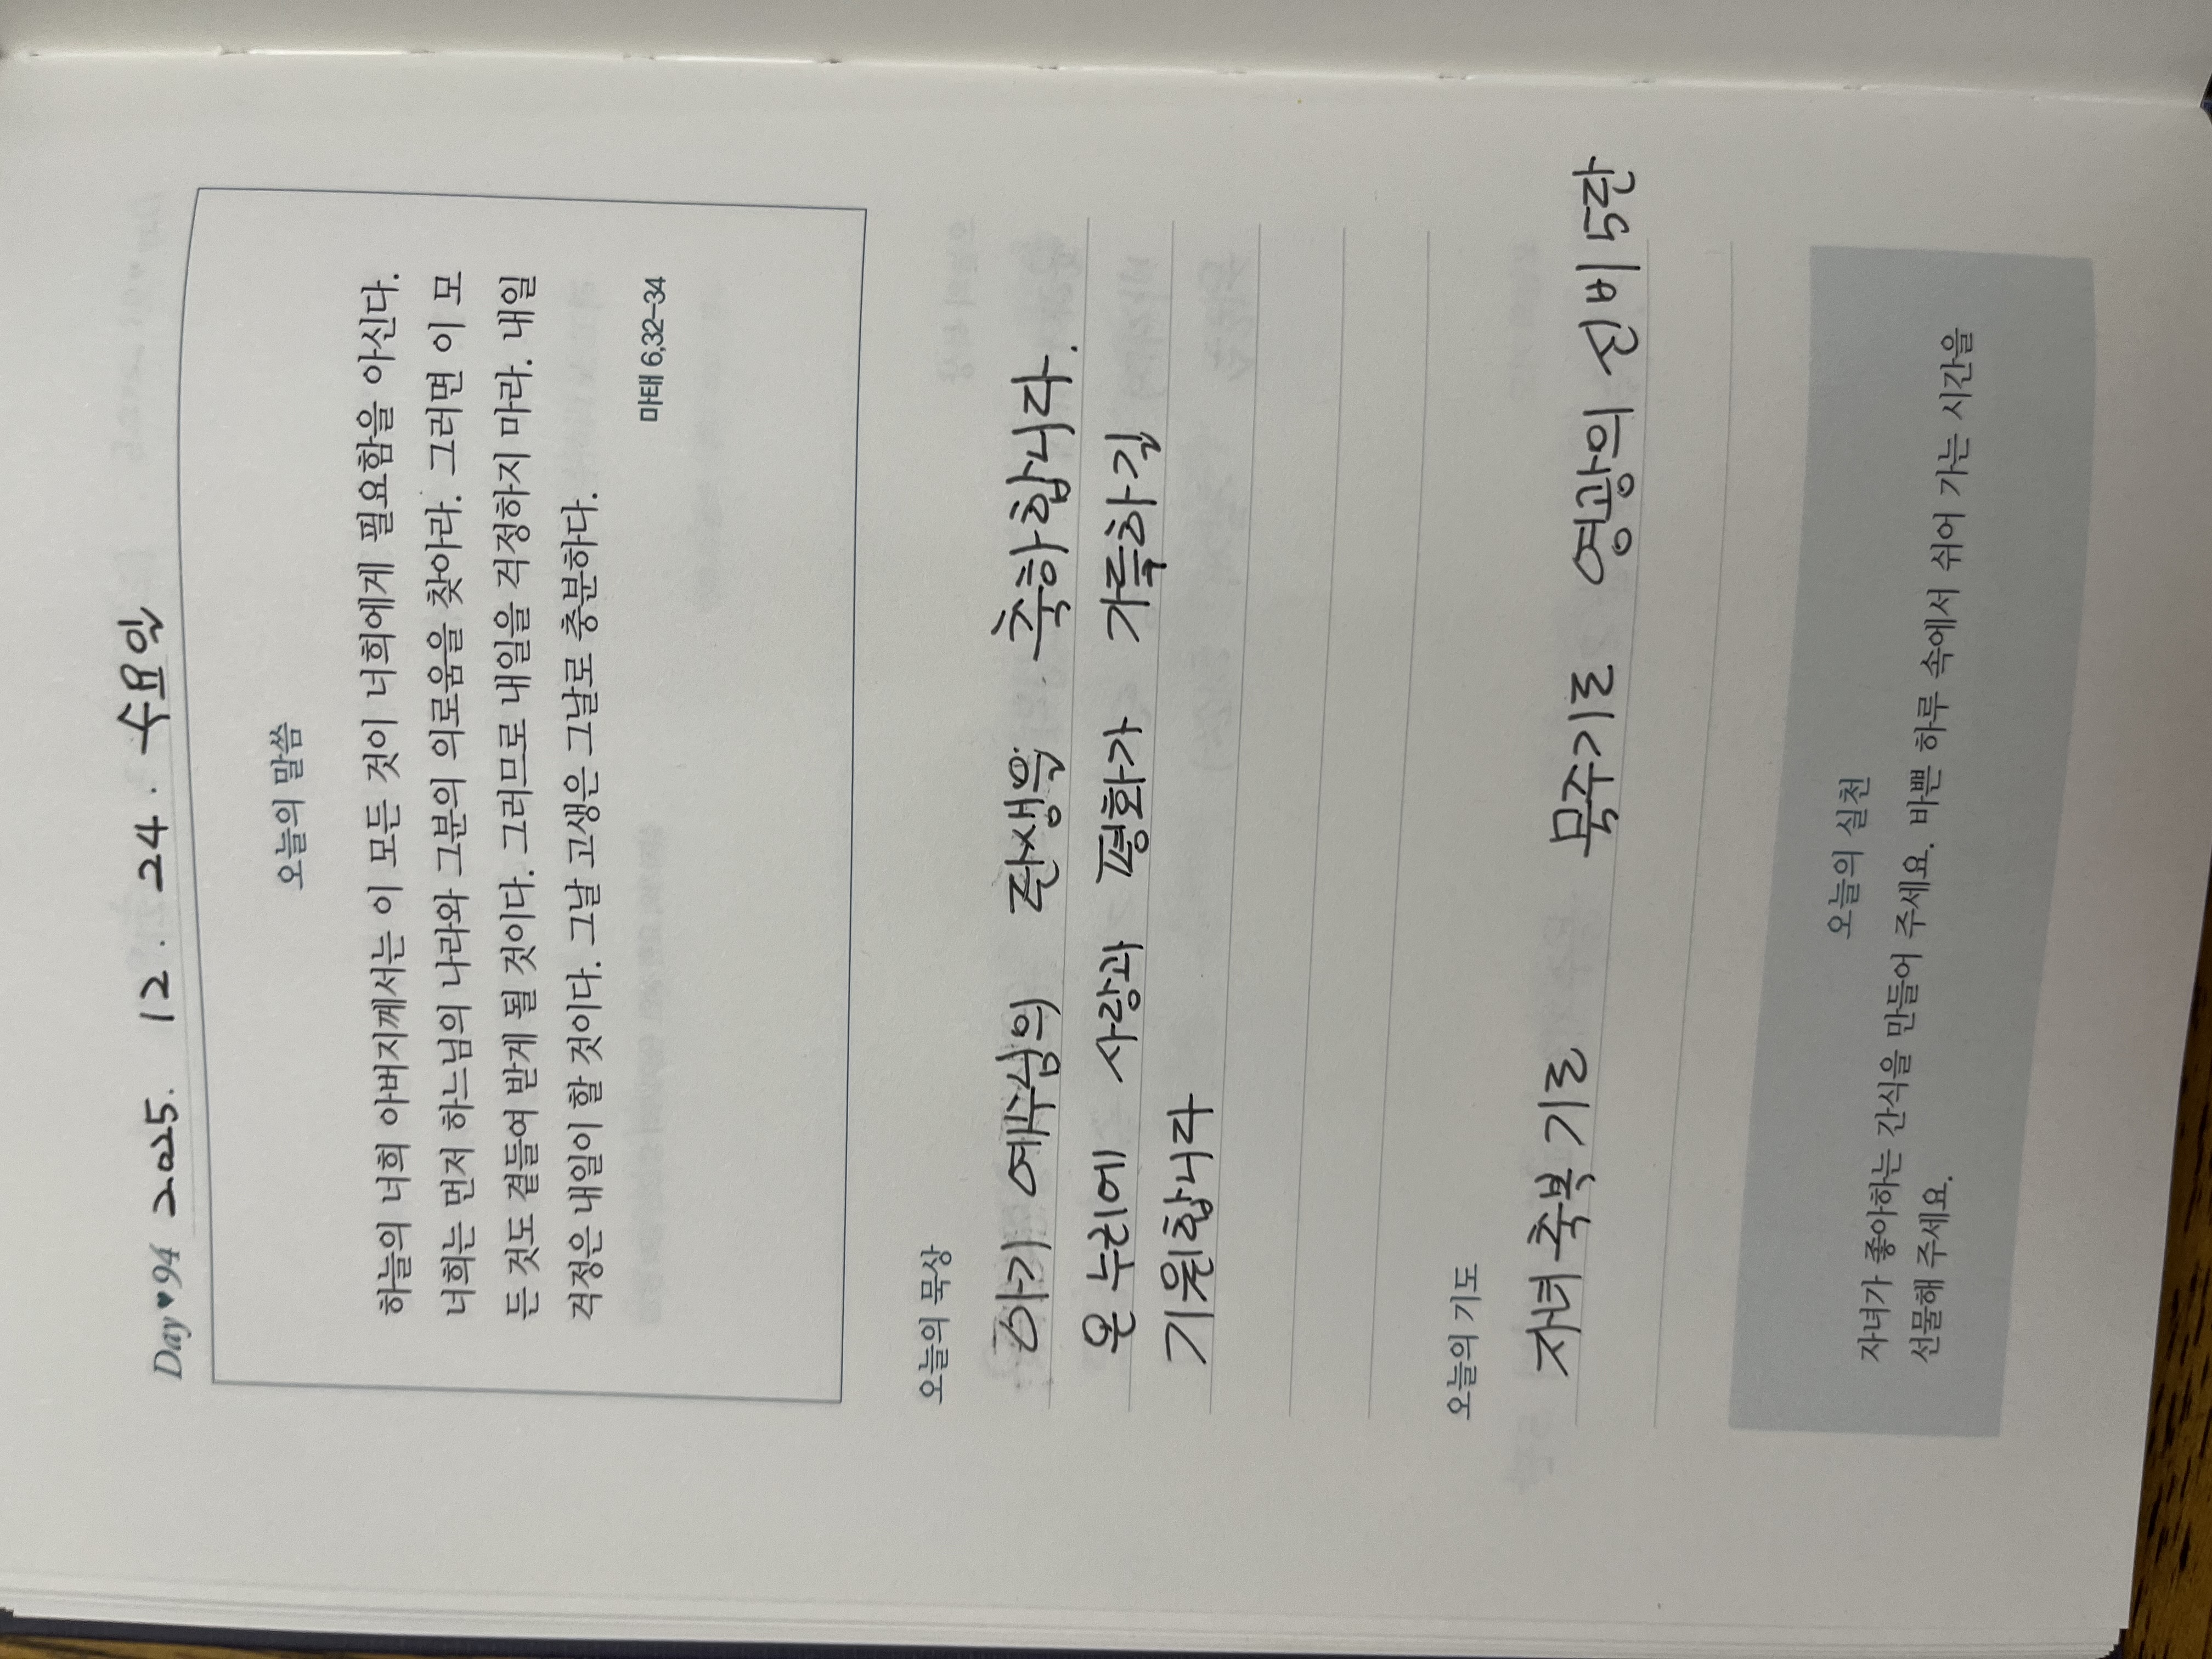 Day♥94 2025. 12. 24. 수요일
오늘의 말씀
하늘의 너희 아버지께서는 이 모든 것이 너희에게 필요함을 아신다.
너희는 먼저 하느님의 나라와 그분의 의로움을 찾아라. 그러면 이 모
든 것도 곁들여 받게 될 것이다. 그러므로 내일을 걱정하지 마라. 내일
걱정은 내일이 할 것이다. 그날 고생은 그날로 충분하다.
마태 6,32-34
오늘의 묵상
아기 예수님의 탄생을 축하합니다.
온 누리에 사랑과 평화가 가득하길
기원합니다
오늘의 기도
자녀 축복 기도 묵주기도 영광의 신비 5단
오늘의 실천
자녀가 좋아하는 간식을 만들어 주세요. 바쁜 하루 속에서 쉬어 가는 시간을
선물해 주세요.